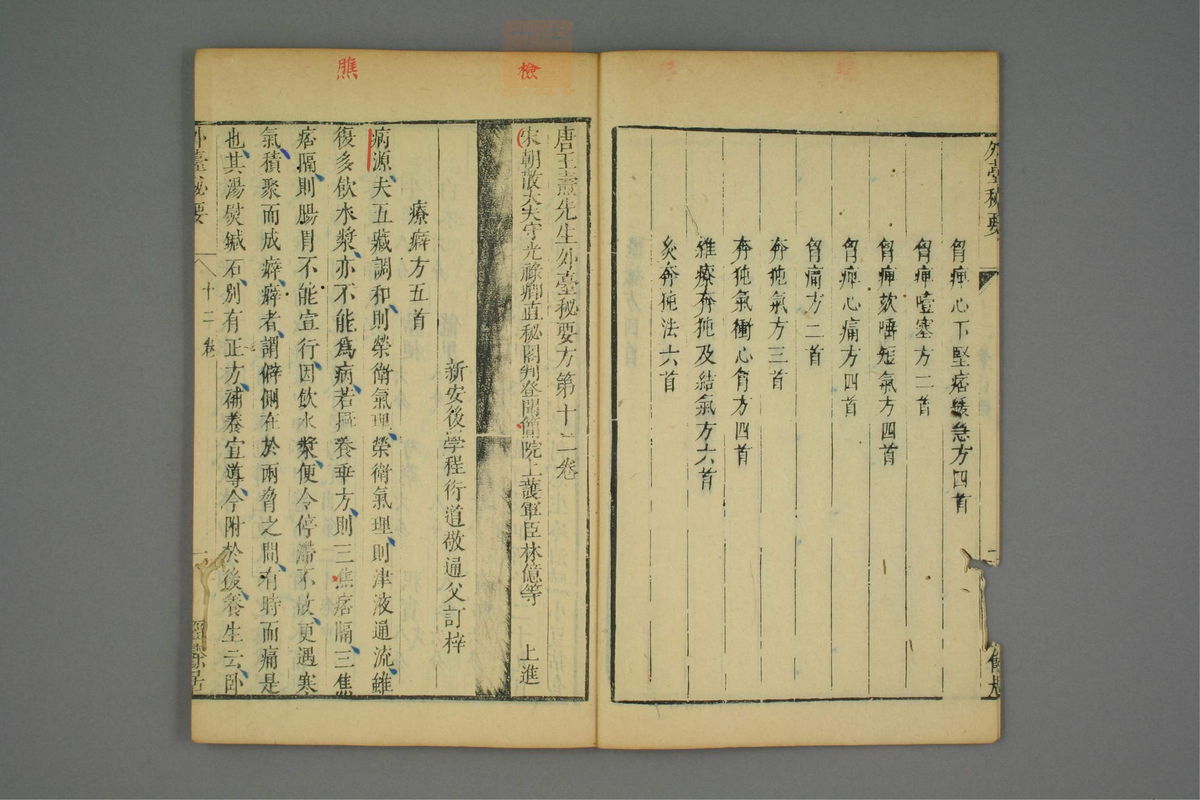 外臺秘要
胷痺心下堅痞緩急方四首
胷痺噎塞方二首
胷痺欬唾短氣方四首
胷痺心痛方四首
胷痛方二首
奔㹠氣方三首
奔㹠氣衝心胷方四首
雜療奔㹠及結氣方六首
灸奔㹠法六首
檢
臕
唐王燾先生外臺秘要方第十二卷
宋朝散大夫守光祿卿直秘閣判登聞簡院上護軍臣林億等 上進
新安後學程衍道敬通父訂梓
療癖方五首
病源夫五藏調和則榮衛氣理榮衛氣理則津液通流雖
復多飲水漿亦不能爲病若攝養乖方則三焦痞隔三焦
痞隔則腸胃不能宣行因飲水漿便令停滯不散更遇寒
氣積聚而成癖癖者謂僻側在於兩脅之間有時而痛是
也其湯熨鍼石別有正方補養宣導今附於後養生云卧
外臺秘要 十二卷 一 經餘居